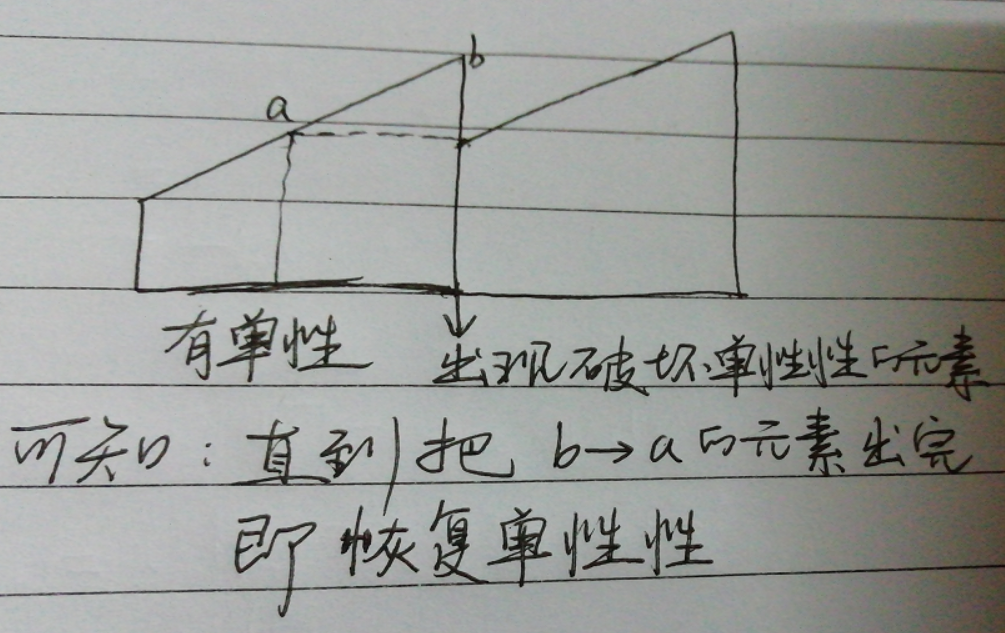 a
b
有单性
出现破坏单性性的元素
可知：直到把 b→a 的元素出完
即恢复单性性